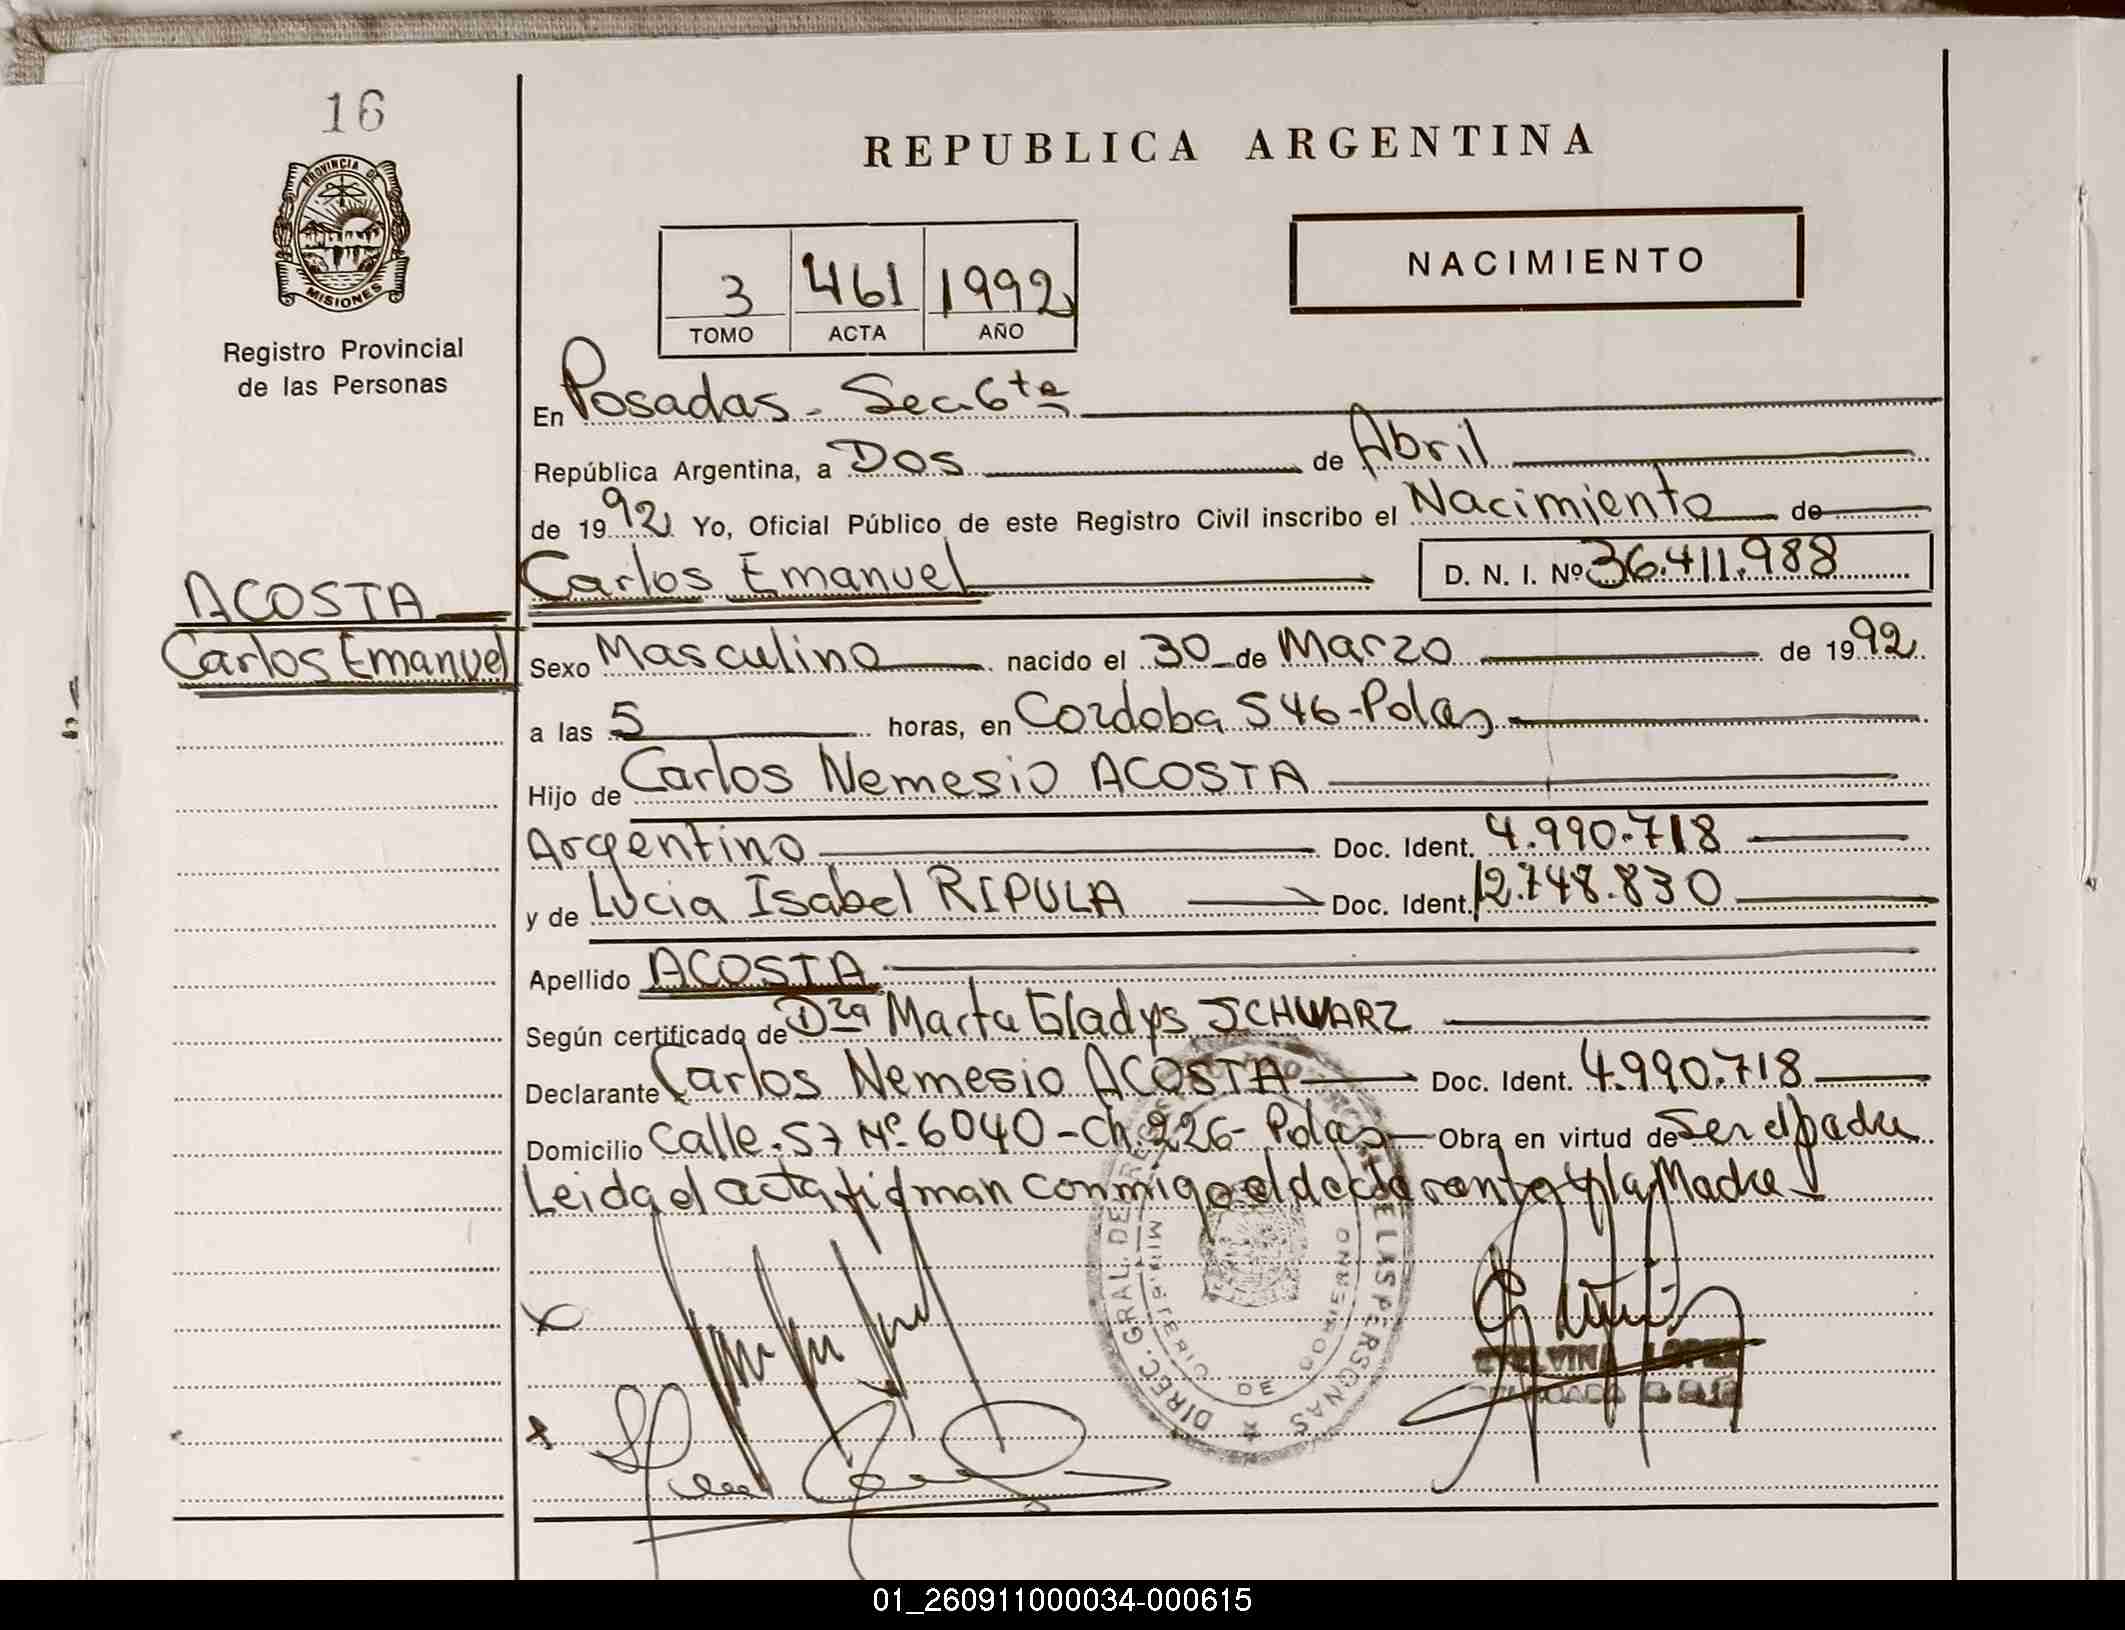 16
PROVINCIA DE
MISIONES
Registro Provincial
de las Personas
REPUBLICA ARGENTINA
3 461 1992
TOMO ACTA AÑO
NACIMIENTO
En Posadas - Sec. 6ta
República Argentina, a Dos de Abril
de 1992 Yo, Oficial Público de este Registro Civil inscribo el Nacimiento de
Carlos Emanuel D. N. I. Nº 36.411.988
ACOSTA
Carlos Emanuel
Sexo Masculino nacido el 30 de Marzo de 1992
a las 5 horas, en Cordoba 546 - Pdas
Hijo de Carlos Nemesio ACOSTA
Argentino Doc. Ident. 4.990.718
y de Lucia Isabel RIPULA Doc. Ident. 12.748.830
Apellido ACOSTA
Según certificado de Dra Marta Gladys SCHWARZ
Declarante Carlos Nemesio ACOSTA Doc. Ident. 4.990.718
Domicilio Calle 57 Nº 6040 - Ch. 226 - Pdas Obra en virtud de Ser el padre
Leida el acta firman conmigo el declarante y la Madre
DIREC. GRAL. DE DE LAS PERSONAS
MINISTERIO DE GOBIERNO
LOPEZ
01_260911000034-000615